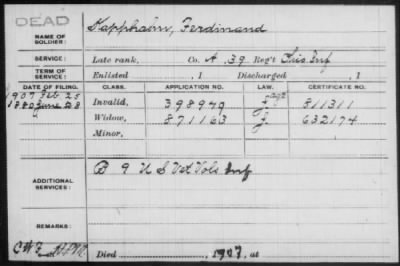 DEAD
NAME OF SOLDIER: Kapphahn, Ferdinand
SERVICE: Late rank, Co. A, 39 Reg't Ills Inf
TERM OF SERVICE: Enlisted , 1 Discharged , 1
DATE OF FILING. CLASS. APPLICATION NO. LAW. CERTIFICATE NO.
1907 Feb 25
1880 June 28 Invalid, 398949 811311
Widow, 871163 632174
Minor,
ADDITIONAL SERVICES: B 9 U S Vet Vols Inf
REMARKS:
Died , 1907, at